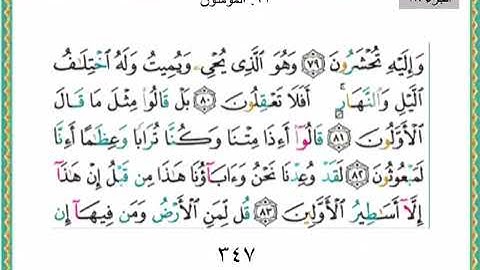 ٢٣. المؤمنون
وَإِلَيْهِ تُحْشَرُونَ ٧٩ وَهُوَ الَّذِى يُحْىِۦ وَيُمِيتُ وَلَهُ اخْتِلَافُ
الَّيْلِ وَالنَّهَارِۚ أَفَلَا تَعْقِلُونَ ٨٠ بَلْ قَالُوا مِثْلَ مَا قَالَ
الْأَوَّلُونَ ٨١ قَالُوٓا أَءِذَا مِتْنَا وَكُنَّا تُرَابًا وَعِظَامًا أَءِنَّا
لَمَبْعُوثُونَ ٨٢ لَقَدْ وُعِدْنَا نَحْنُ وَءَابَآؤُنَا هَٰذَا مِن قَبْلُ إِنْ هَٰذَآ
إِلَّآ أَسَاطِيرُ الْأَوَّلِينَ ٨٣ قُل لِّمَنِ الْأَرْضُ وَمَن فِيهَآ إِن
٣٤٧